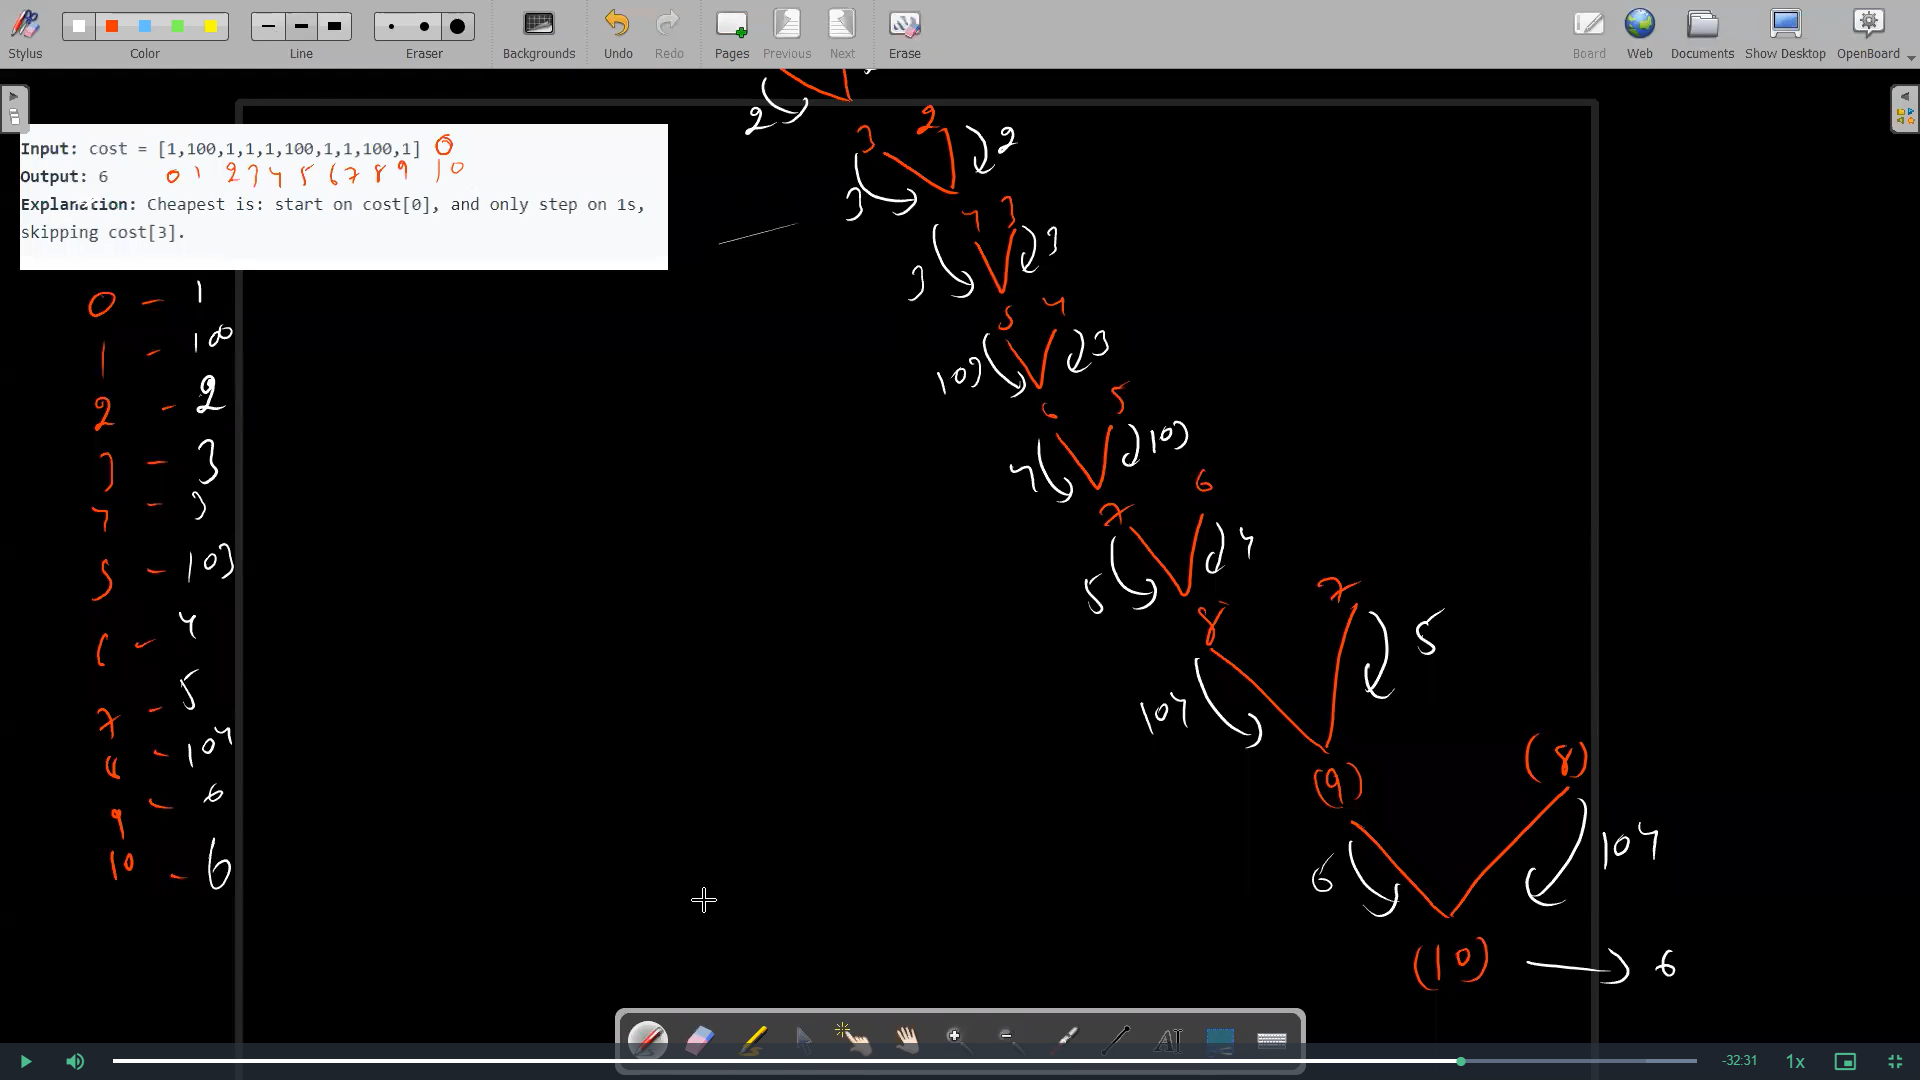 Stylus
Color
Line
Eraser
Backgrounds
Undo
Redo
Pages
Previous
Next
Erase
Board
Web
Documents
Show Desktop
OpenBoard
Input: cost = [1,100,1,1,1,100,1,1,100,1] 0
Output: 6 0 1 2 3 4 5 6 7 8 9 10
Explanation: Cheapest is: start on cost[0], and only step on 1s,
skipping cost[3].
0 - 1
1 - 100
2 - 2
3 - 3
4 - 3
5 - 103
6 - 4
7 - 5
8 - 104
9 - 6
10 - 6
2
3 2 2
3
4 3
3 3
5 4
103 3
6 5
4 103
7 6
5 4
8 7
104 5
(9) (8)
6 104
(10) 6
-32:31
1x